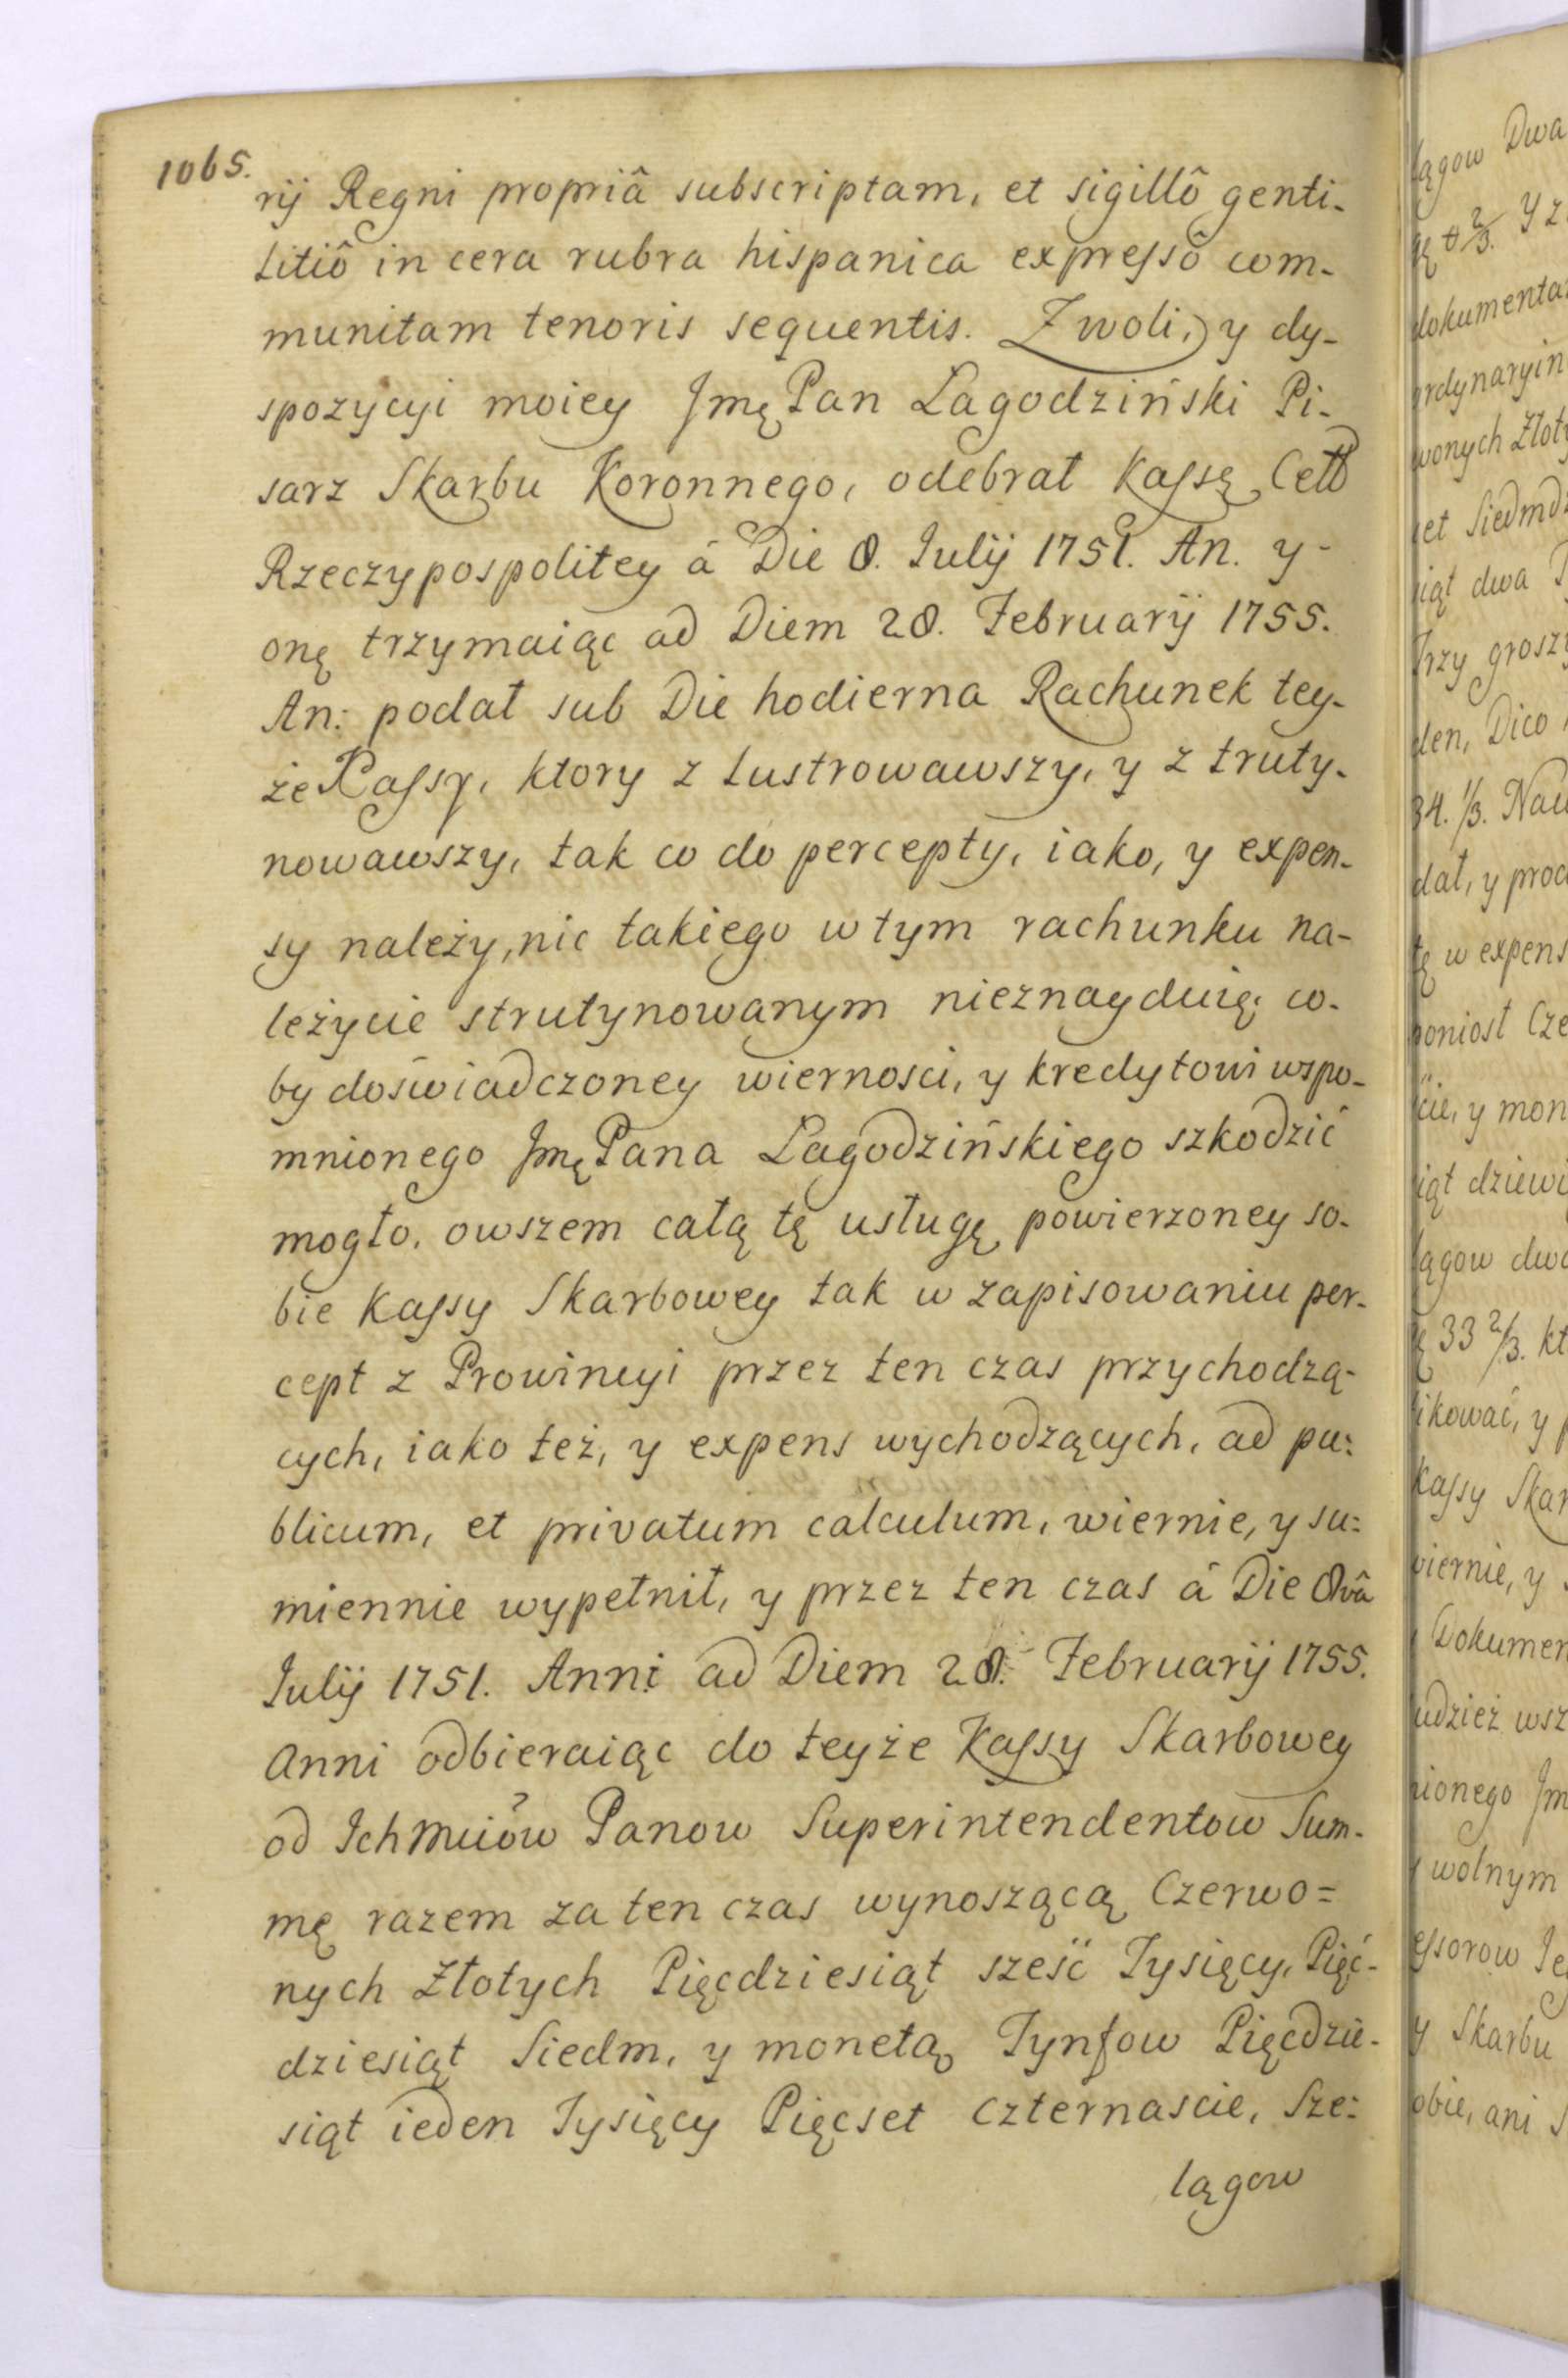 1065.
rij Regni propriâ subscriptam, et sigillô genti-
litiô in cera rubra hispanica expressô com-
munitam tenoris sequentis. Z woli, y dy-
spozycyi moiey Jmę Pan Łagodziński Pi-
sarz Skarbu Koronnego, odebrał Kassę
Rzeczypospolitey á Die 8. Iulij 1751. An. y-
onę trzymaiąc ad Diem 28. Februarij 1755.
An: podał sub Die hodierna Rachunek tey-
że Kassy, ktory z lustrowawszy, y z truty-
nowawszy, tak co do percepty, iako, y expen-
sy należy, nic takiego w tym rachunku na-
leżycie strutynowanym nieznayduię co-
by doświadczoney wiernosci, y kredytowi wspo-
mnionego Jmę Pana Łagodzińskiego szkodzić
mogło. owszem całą tę usługę powierzoney so-
bie Kassy Skarbowey tak w zapisowaniu per-
cept z Prowincyi przez ten czas przychodzą-
cych, iako też, y expens wychodzących, ad pu:
blicum, et privatum calculum, wiernie, y su:
miennie wypełnił, y przez ten czas á Die 8vâ
Iulij 1751. Anni ad Diem 28. Februarij 1755.
Anni odbieraiąc do teyże Kassy Skarbowey
od Ichmciów Panow Superintendentow Sum-
mę razem za ten czas wynoszącą Czerwo=
nych Złotych Pięcdziesiąt sześć Tysięcy, Pięć-
dziesiąt Siedm, y monetą Tynfow Pięcdzie-
siąt ieden Tysięcy Pięcset czternascie, Sze:
lągow
lągow Dwa
2/3. Y z
dokumenta
ordynaryin
wonych Złoty
set Siedmdz
siąt dwa
Trzy groszy
den, Dico
34. 1/3. Nau
dał, y
tę w expens
poniosł Cze
cie, y mon
iąt dziewi
lągow dwa
33 2/3. kt
ikować, y p
Kassy Skar
wiernie, y
Dokumen
udzież wsz
nionego Jm
y wolnym
essorow Je
y Skarbu
obie, ani S